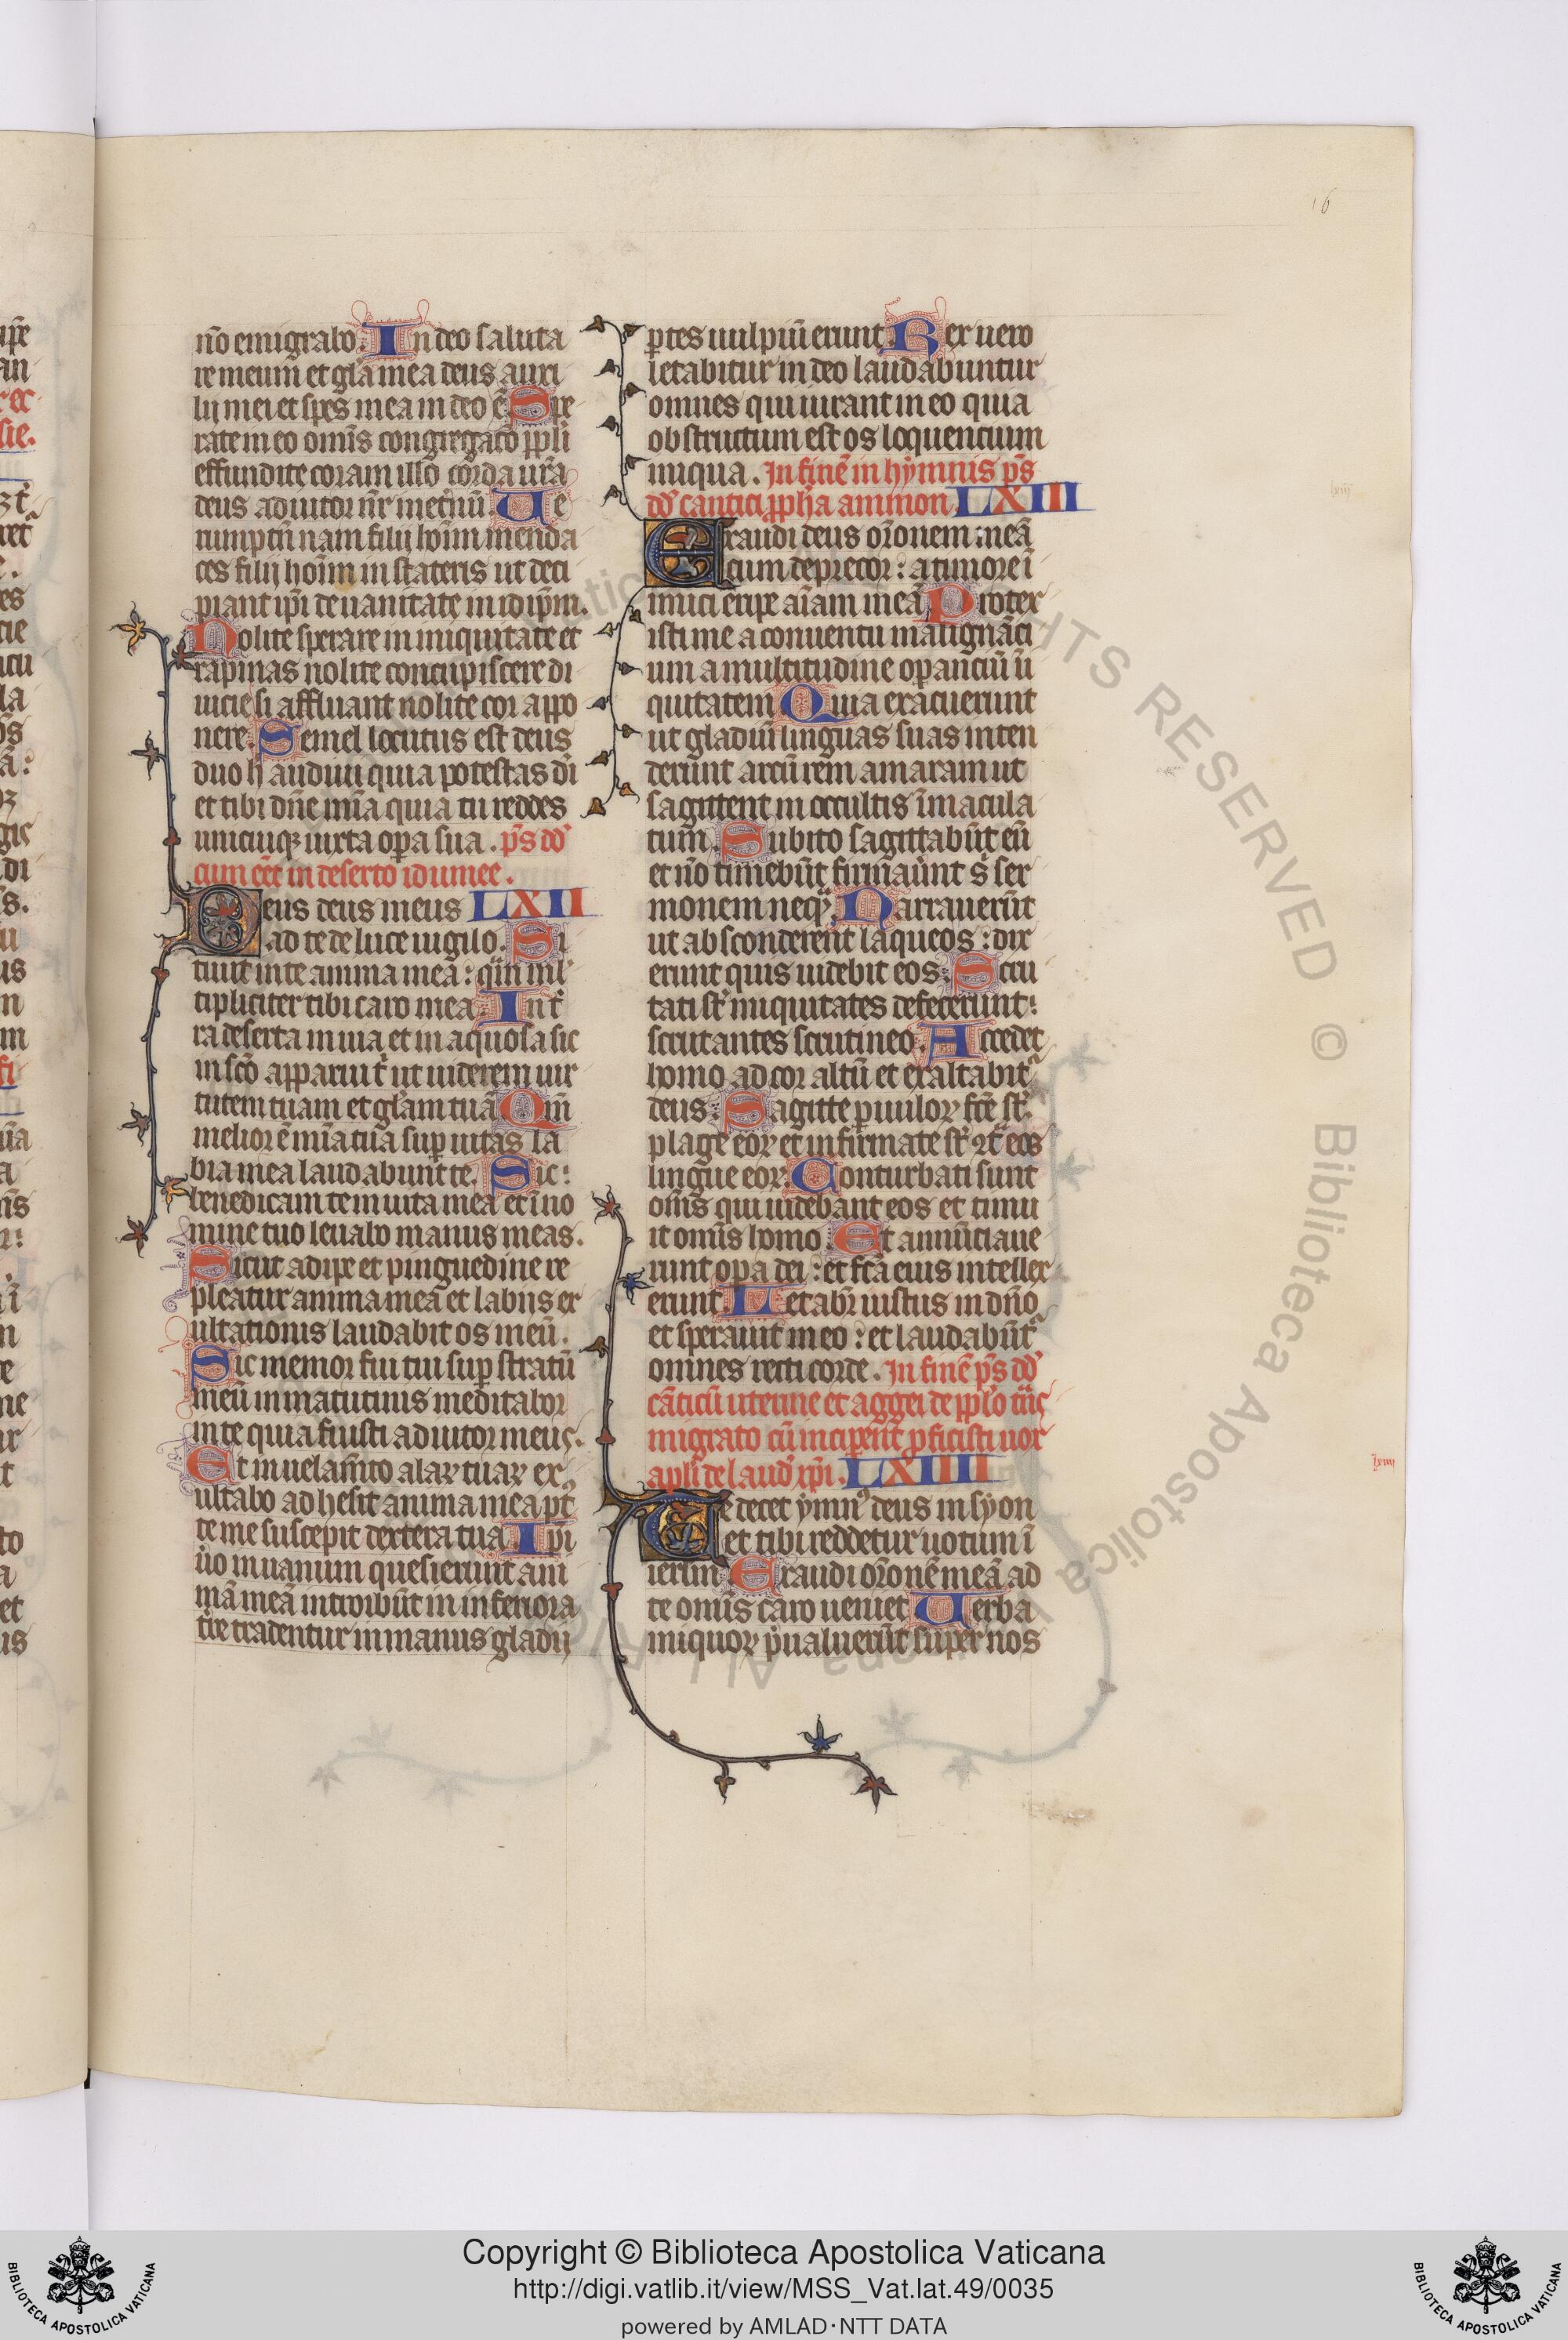 16
nō emigrabo. In deo saluta
re meum et gl̄a mea deus auxi
lij mei et spes mea in deo ē Spe
rate in eo om̄is congregac̄o pp̄li
effundite coram illo corda ur̄a
deus adiutor nr̄ in etn̄ū. Ue
rumptn̄ uani filij hoīm menda
ces filij hoīm in stateris ut deci
piant ip̄i de uanitate in idip̄m.
Nolite sperare in iniquitate et
rapinas nolite concupiscere di
uicie si affluant nolite cor appo
nere. Semel locutus est deus
duo h̄ audiui quia potestas dī
et tibi dn̄e mīa quia tu reddes
unicuiqꝫ iuxta opa sua. p̄s dd̄
cum eēt in deserto idumee.
Deus deus meus LXII
ad te de luce uigilo. Si
tiuit in te anima mea: qm̄ ml̄
tipliciter tibi caro mea. In t̄
ra deserta inuia et inaquosa sic
in sc̄o apparui t̄ ut uiderem uir
tutem tuam et gl̄am tuā Qm̄
melior ē mīa tua sup uitas la
bia mea laudabunt te. Sic:
benedicam te in uita mea et ī no
mine tuo leuabo manus meas.
Sicut adipe et pinguedine re
pleatur anima mea et labijs ex
ultationis laudabit os meū.
Sic memor fui tui sup stratū
meū in matutinis meditabor
in te quia fuisti adiutor meus.
Et in uelam̄to alaꝝ tuaꝝ ex
ultabo adhesit anima mea pt̄
te me suscepit dextera tua. Ip̄i
ūo in uanum quesierunt ani
mā meā introibūt in inferiora
tr̄e tradentur in manus gladij
ꝑtes uulpiū erunt Rex uero
letabitur in deo laudabuntur
omnes qui iurant in eo quia
obstructum est os loquencium
iniqua. In finē in hymnis p̄s
dd̄ cantici ꝓph̄a ammon LXIII
Exaudi deus or̄onem meā
cum deprecor: a timore ī
imici eripe aīam meā Protex
isti me a conuentu malignāci
um a multitudine opanciū ī
quitatem Quia exacuerunt
ut gladiū linguas suas inten
derunt arcū rem amaram ut
sagittent in occultis īmacula
tum. Subito sagittabūt eū
et nō timebūt firmaūnt s̄ ser
monem neqꝫ Narrauerūt
ut absconderent laqueos: dix
erunt quis uidebit eos. Scru
tati st̄ iniquitates defecerunt:
scrutantes scrutineo. Accedet
homo ad cor altū et exaltabit̄
deus. Sagitte ꝑuuloꝝ fc̄e st̄
plage eoꝝ et infirmate st̄ ꝯt̄ eos
lingue eoꝝ. Conturbati sunt
om̄s qui uidebant eos et timu
it om̄is homo. Et annūciaue
runt opa dei: et fc̄a eius intellex
erunt. Letabr̄ iustus in dn̄o
et sperauit in eo: et laudabūt̄
omnes recti corde. In finē p̄s dd̄
cāticū iheremie et aggei de pp̄lo
migrato cū inciperēt ꝓficisci uox
apl̄i de laud̄ xp̄i. LXIIII
Te decet ymnꝰ deus in syon
et tibi reddetur uotum ī
ierlm̄ Exaudi or̄onē meā ad
te om̄is caro ueniet Uerba
iniquoꝝ p̄ualuerūt super nos
lxiii
lxiiii
ALL RIGHTS RESERVED © Biblioteca Apostolica Vaticana
Copyright © Biblioteca Apostolica Vaticana
http://digi.vatlib.it/view/MSS_Vat.lat.49/0035
powered by AMLAD·NTT DATA
BIBLIOTECA APOSTOLICA VATICANA
BIBLIOTECA APOSTOLICA VATICANA